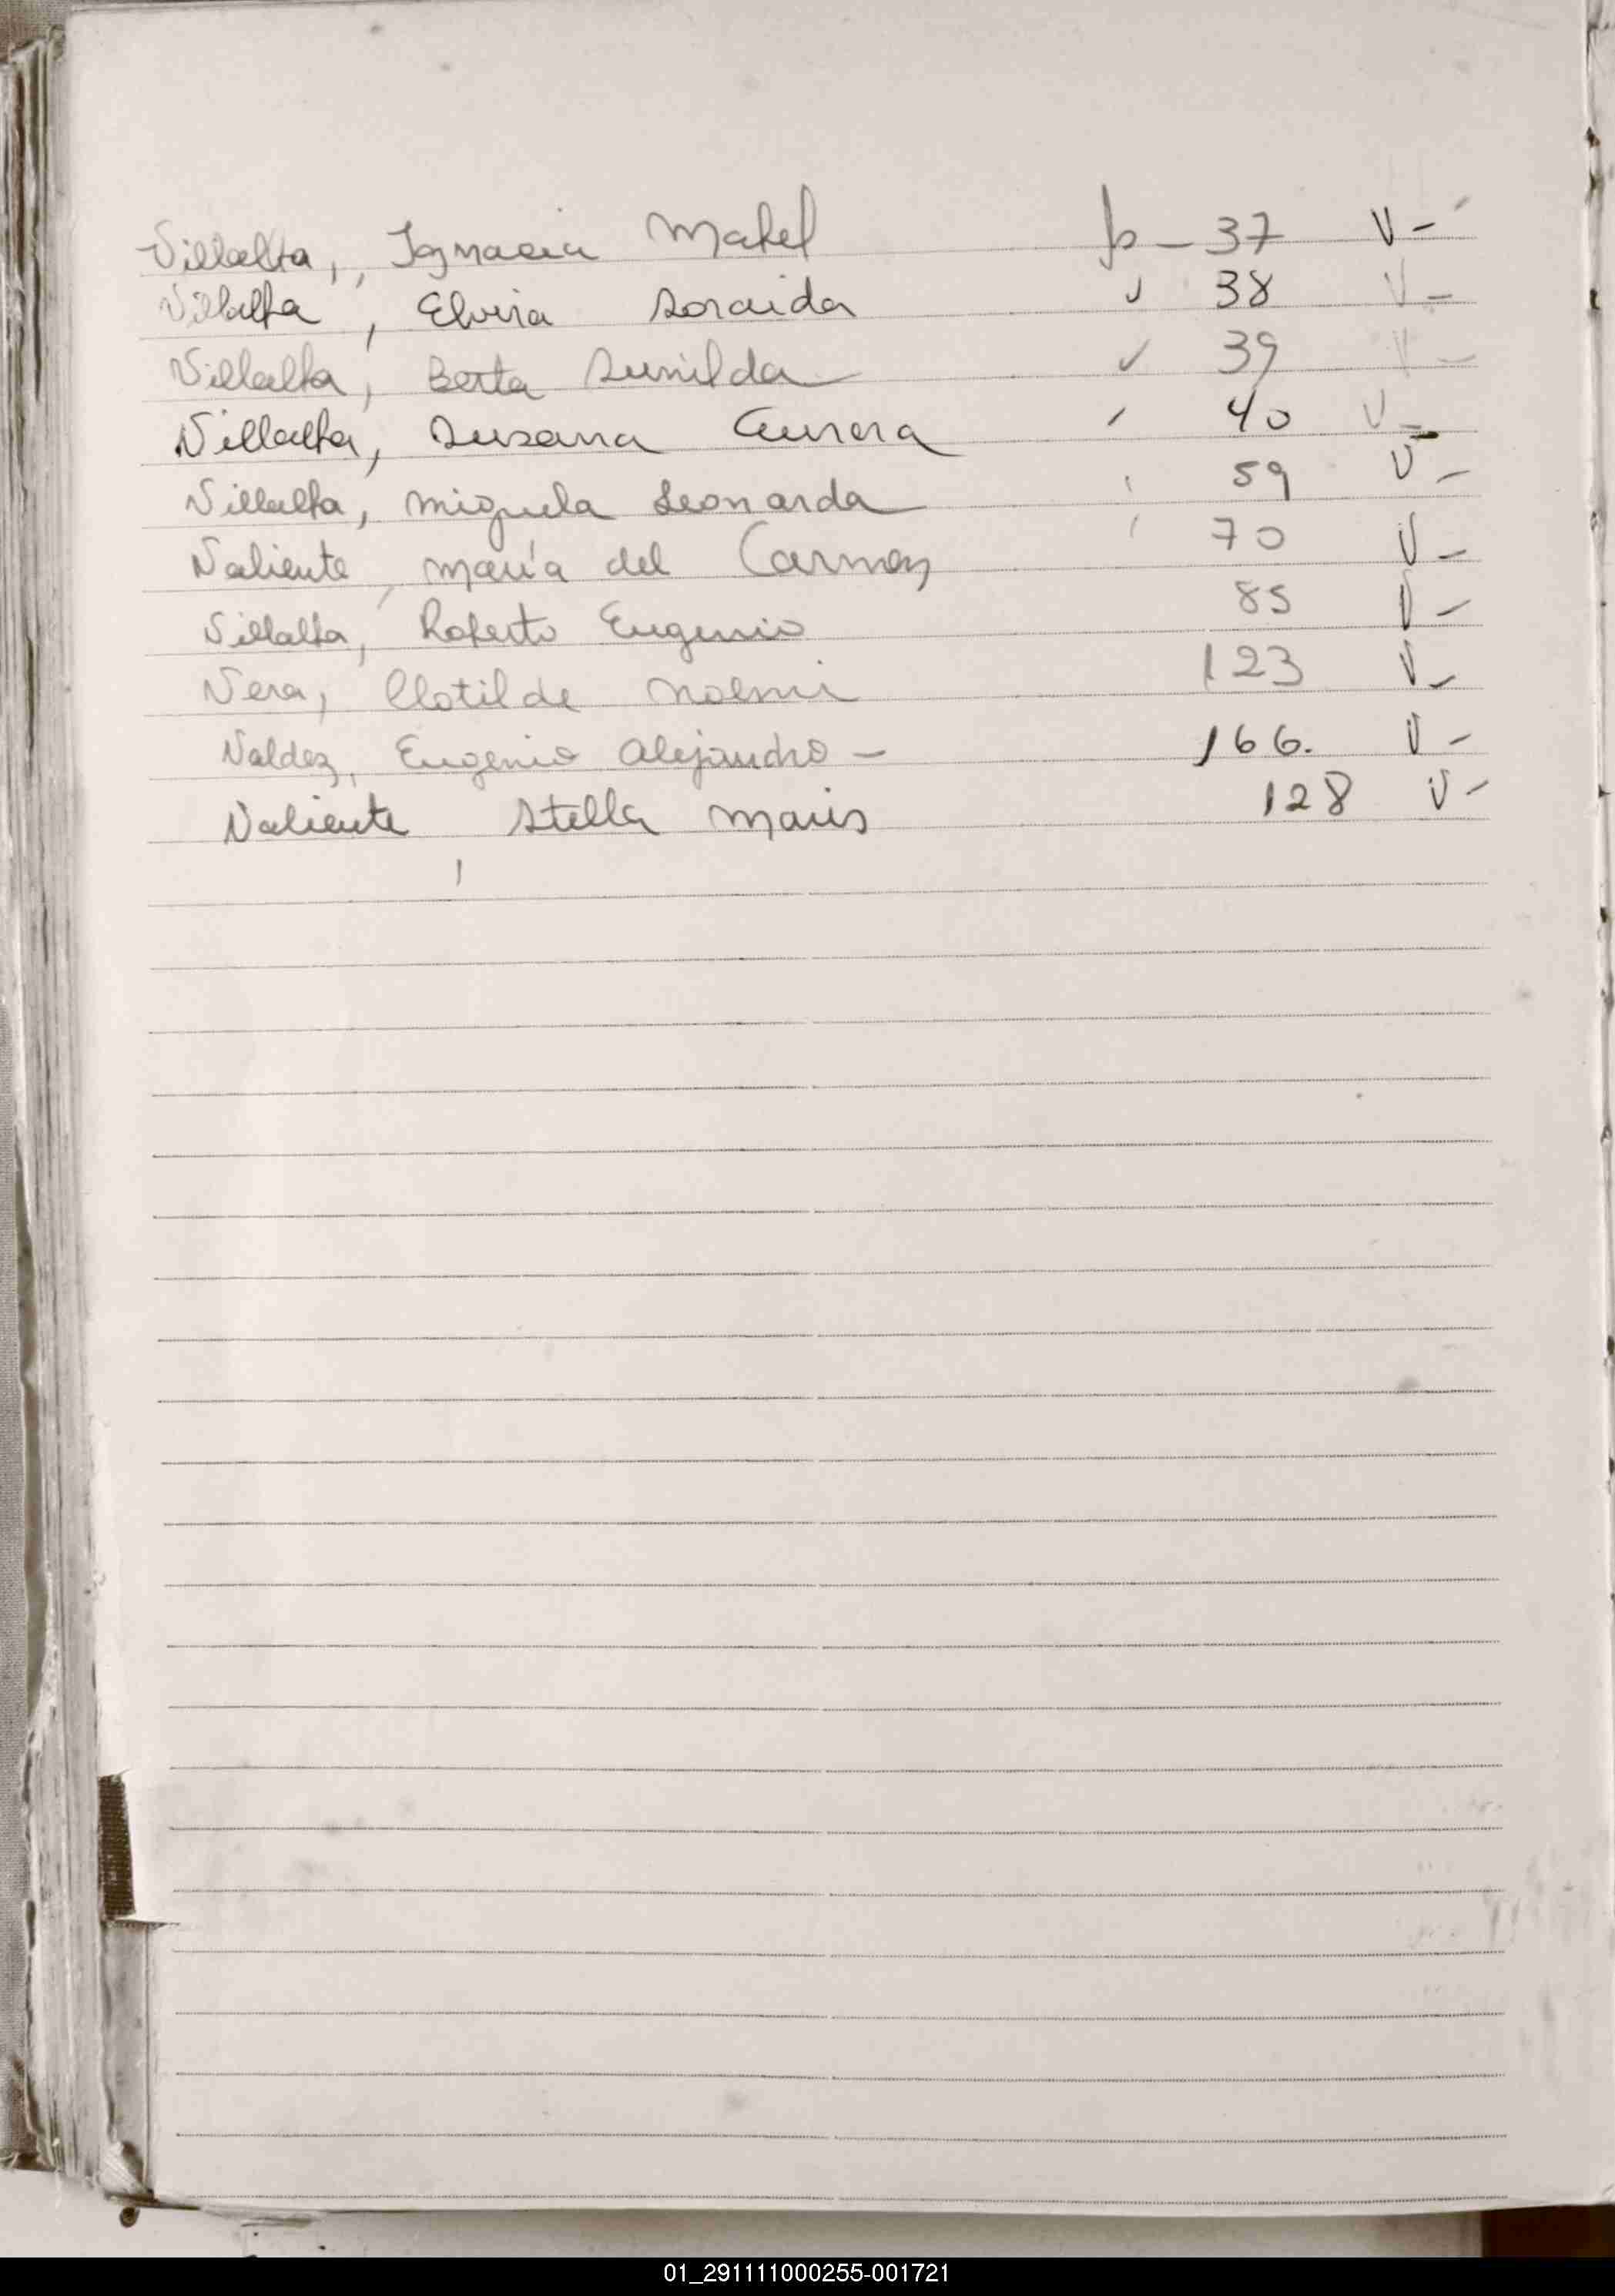 Villalba, Ignacia Mabel fo - 37 V-
Villalba, Elvira Soraida " 38 V-
Villalba, Berta Sunilda " 39 V-
Villalba, Susana Aurora " 40 V-
Villalba, Miguela Leonarda " 59 V-
Valiente, María del Carmen " 70 V-
Villalba, Roberto Eugenio 85 V-
Vera, Clotilde Noemi 123 V-
Valdez, Eugenio Alejandro - 166. V-
Valiente, Stella Maris 128 V-
01_291111000255-001721